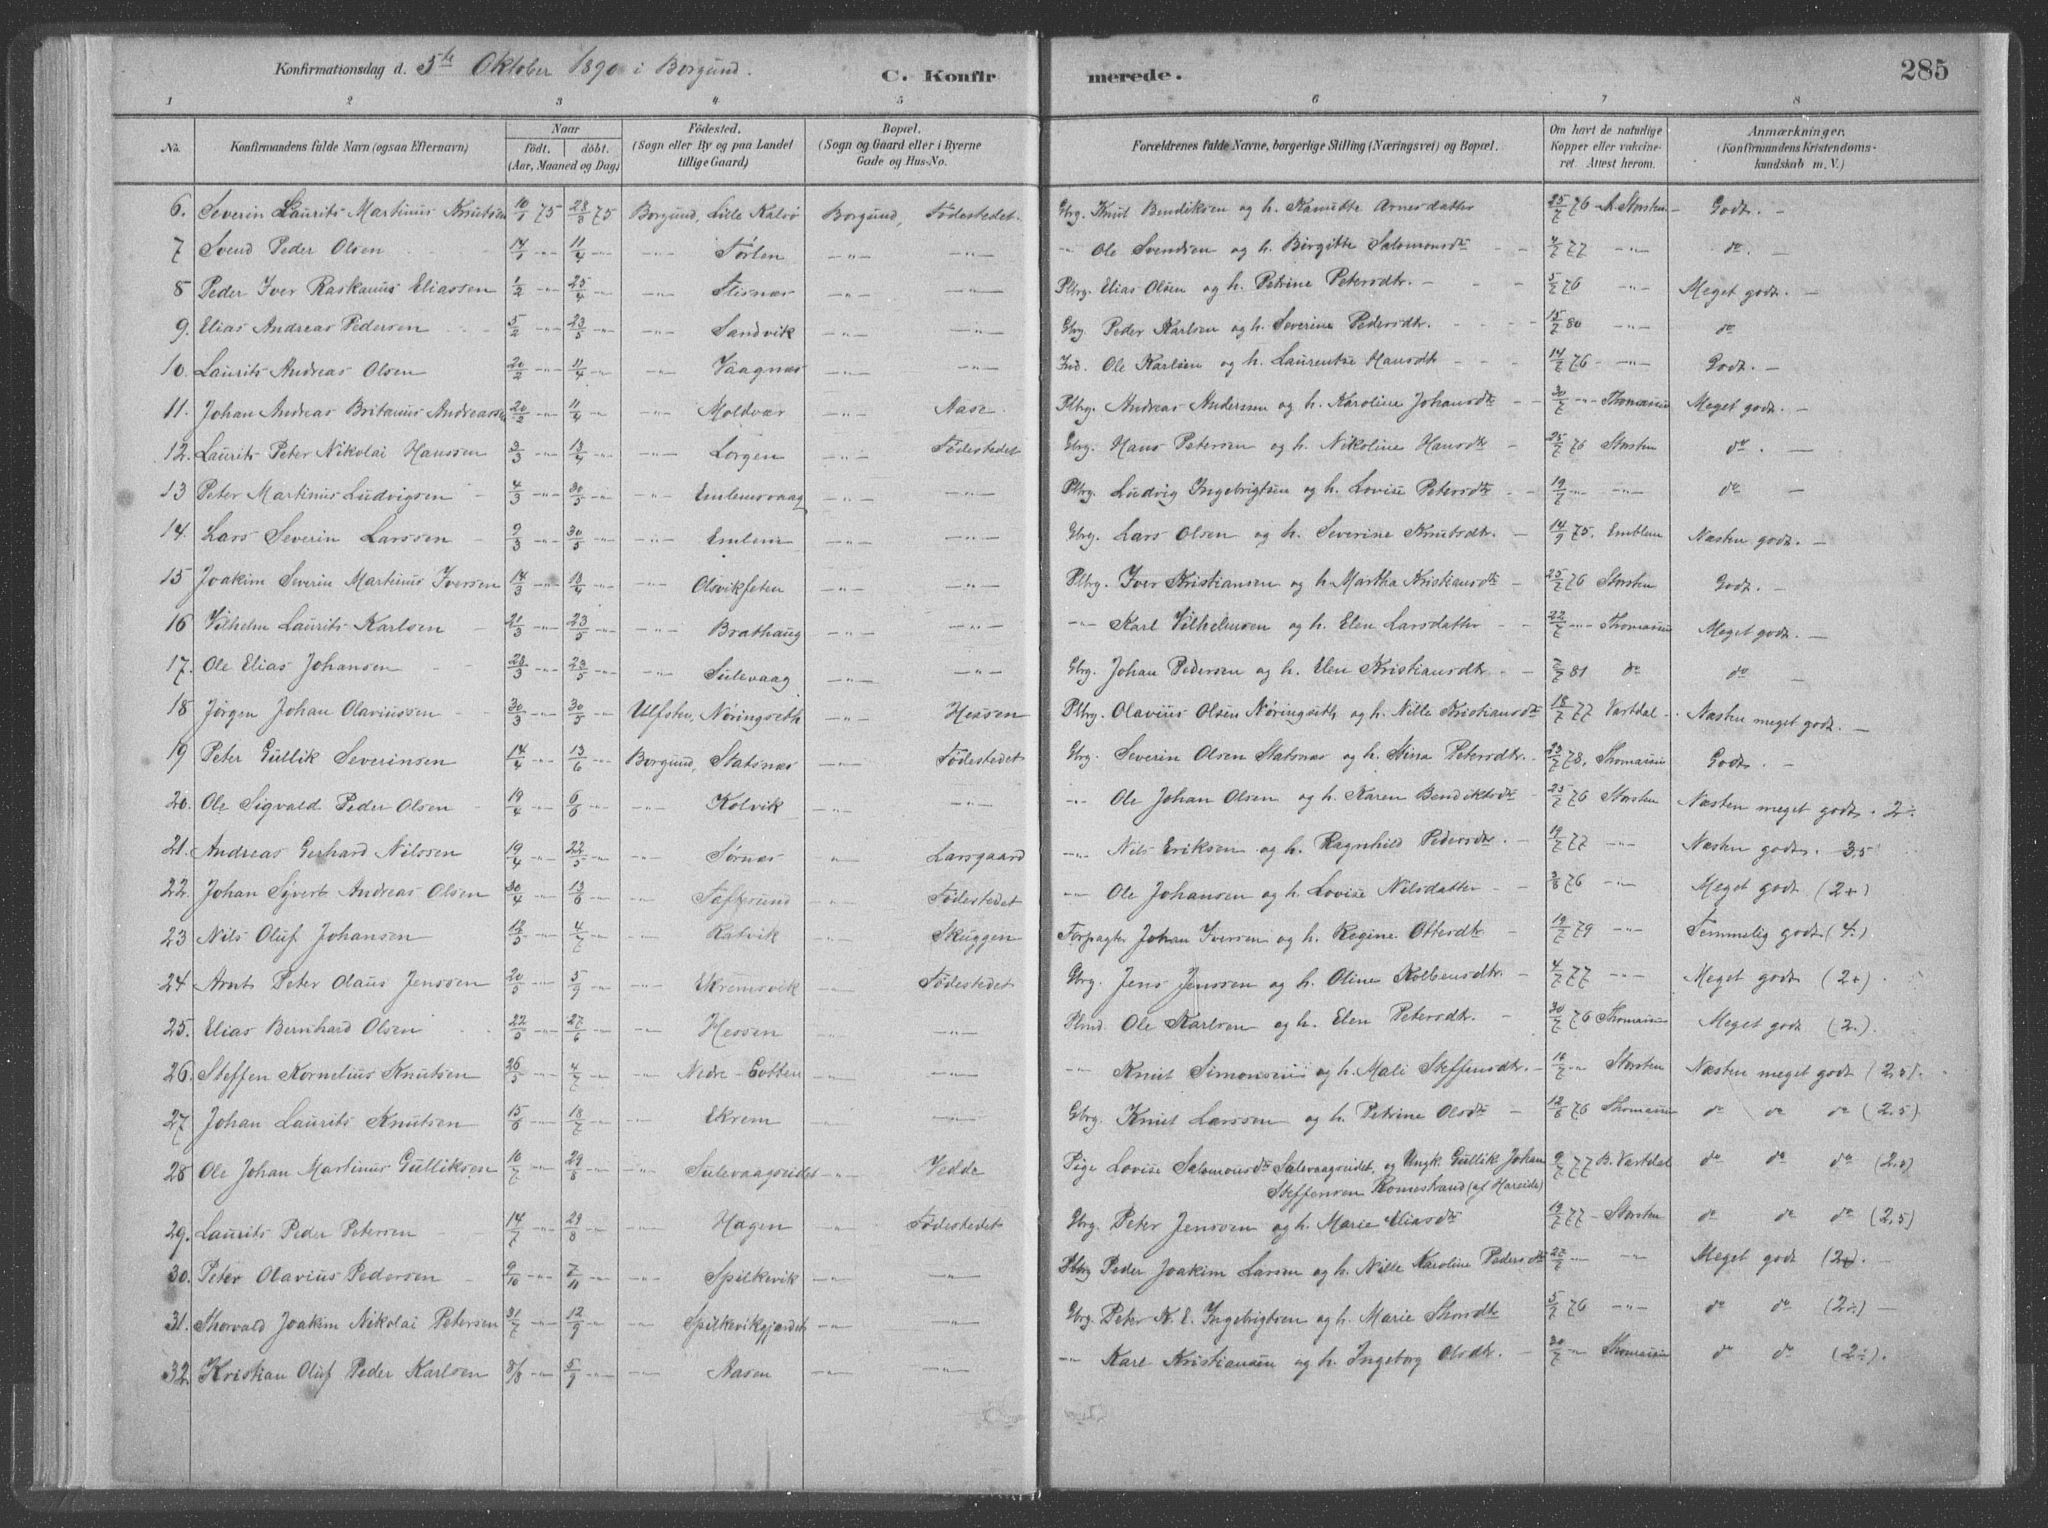 Konfirmationsdag d. 5te Oktober 1890 i Borgund. C. Konfir merede. 285
1 2 3 4 5 6 7 8
No. Konfirmandens fulde Navn (ogsaa Efternavn) Naar født. døbt. (Aar, Maaned og Dag) Fødested. (Sogn eller By og paa Landet tillige Gaard) Bopæl. (Sogn og Gaard eller i Byerne Gade og Hus-No. Forældrenes fulde Navne, borgerlige Stilling (Næringsvei) og Bopæl. Om havt de naturlige Kopper eller vakcineret. Attest herom. Anmærkninger. (Konfirmandens Kristendomskundskab m. V.)
6. Severin Laurits Martinus Knutsen 10/1 75 28/3 75 Borgund, Lille Kalvø Borgund, Fødestedet. Gbrg. Knut Bendiksen og h. Arnesdatter 25/7 76 Storsten Godt. —
7 Svend Peder Olsen 14/1 -"- 11/4 -"- -"- Tørlen -"- -"- -"- Ole Svendsen og h. Birgitte Salomonsdtr 4/7 77 -"- do. —
8 Peder Iver Raskanus Eliassen 1/2 -"- 25/4 -"- -"- Flisnæs -"- -"- Plbrg. Elias Olsen og h. Petrine Petersdtr. 5/7 76 -"- Meget godt. —
9. Elias Andreas Pedersen 5/2 -"- 23/5 -"- -"- Sandvik -"- -"- Gbrg. Peder Karlsen og h. Severine Pedersdtr. 15/7 80 -"- do
10. Laurits Andreas Olsen 20/2 -"- 11/4 -"- -"- Vaagnæs -"- -"- Ind. Ole Karlsen og h. Laurentse Hansdtr 14/7 76 -"- Godt. —
11. Johan Andreas Britanus Andreassen 20/2 -"- 11/4 -"- -"- Moldvær -"- Aase Plbrg. Andreas Anderssen og h. Karoline Johansdtr 30/7 -"- Thomassen Meget godt. —
12. Laurits Peter Nikolai Hanssen 3/3 -"- 13/4 -"- -"- Lorgen -"- Fødestedet Gbrg. Hans Petersen og h. Nikoline Hansdtr 25/7 76 Storsten do. —
13 Peter Martinus Ludvigsen 4/3 -"- 30/5 -"- -"- Emlemsvaag -"- -"- Plbrg. Ludvig Ingebrigtsen og h. Lovise Petersdtr 19/7 -"- -"- do —
14. Lars Severin Larssen 9/3 -"- 30/5 -"- -"- Emlem -"- -"- Gbrg. Lars Olsen og h. Severine Knutsdtr. 14/9 75. Emblem Næsten godt. —
15 Joakim Severin Martinus Iversen 14/3 -"- 13/4 -"- -"- Olsvikfeten -"- -"- Plbrg. Iver Kristiansen og h. Martha Kristiansdtr 25/7 76 Storsten Godt. —
16 Vilhelm Laurits Karlsen 21/3 -"- 23/5 -"- -"- Brathaug -"- -"- -"- Karl Vilhelmsen og h. Elen Larsdatter 22/7 -"- Thomassen Meget godt. —
17. Ole Elias Johansen 28/3 -"- 23/5 -"- -"- Sulevaag -"- -"- Gbrg. Johan Pedersen og h. Elen Kristiansdtr. 7/7 81 do do —
18 Jørgen Johan Olaviussen 30/3 -"- 30/5 -"- Ulfsten, Nøringseth -"- Hessen Plbrg. Olavius Olsen Nøringseth og h. Nille Kristiansdtr 18/7 77 Vartdal Næsten meget godt. —
19 Peter Gullik Severinsen 14/4 -"- 13/6 -"- Borgund, Slatsnæs -"- Fødestedet Gbrg. Severin Olsen Slatsnæs og h. Stina Petersdtr. 23/7 78. Thomassen Godt. —
20. Ole Sigvald Peder Olsen 19/4 -"- 6/6 -"- -"- Kolvik -"- -"- -"- Ole Johan Olsen og h. Karen Bendiktsdtr 25/7 76 Storsten Næsten meget godt. 2÷
21. Andreas Gerhard Nilssen 19/4 -"- 22/5 -"- -"- Sørnæs -"- Larsgaard -"- Nils Eriksen og h. Ragnhild Pedersdtr. 19/7 77 -"- Næsten godt. 3,5
22. Johan Sivert Andreas Olsen 30/4 -"- 13/6 -"- -"- Tøffesund -"- Fødestedet -"- Ole Johansen og h. Lovise Nilsdatter 3/8 76 -"- Meget godt (2+)
23 Nils Oluf Johansen 12/5 -"- 4/7 -"- -"- Ratvik -"- Skuggen Forpagter Johan Iversen og h. Regine Ottersdtr 19/7 79 -"- Temmelig godt (4.)
24 Arnt Peter Olaus Jenssen 20/5 -"- 5/9 -"- -"- Ekremsvik -"- Fødestedet Gbrg. Jens Jenssen og h. Oline Kolbensdtr. 4/7 77 -"- Meget godt (2+)
25. Elias Bernhard Olsen 22/5 -"- 27/6 -"- -"- Hessen -"- -"- Ole Karlsen og h. Elen Petersdtr. 30/7 76 Thomassen Meget godt (2.)
26. Steffen Kornelius Knutsen 26/5 -"- 4/7 -"- -"- Nedre -"- -"- -"- Knut Simonsen og h. Mali Steffensdtr. 16/7 -"- Storsten Næsten meget godt (2,5).
27. Johan Laurits Knutsen 15/6 -"- 18/7 -"- -"- Ekrem -"- -"- Gbrg. Knut Larssen og h. Petrine Olsdtr 12/6 76 Thomassen do do do (2,5)
28 Ole Johan Martinus Gulliksen 16/7 -"- 29/8 -"- -"- Sulevaagseidet -"- Vedde Pige Lovise Salomonsdtr Sulevaagseidet, og Ungk. Gullik Johan 9/7 77 B. Vartdal do do do (2,5)
Steffensen Romestrand (af Hareide)
29. Laurits Peder Petersen 14/7 -"- 29/8 -"- -"- Hagen -"- Fødestedet Gbrg. Peter Jenssen og h. Marie Eliasdtr 19/7 77 Storsten do do do (2,5)
30. Peter Olavius Pedersen 9/10 -"- 7/11 -"- -"- Spilkevik -"- -"- Plbrg Peder Joakim Larsen og h. Nille Karoline Pedersdtr 27/7 -"- -"- Meget godt (2+)
31. Thorvald Joakim Nikolai Petersen 31/7 -"- 12/9 -"- -"- Spilkevikgjærdet -"- -"- Gbrg. Peter N. E. Ingebrigtsen og h. Marie Thorsdtr 5/7 76 -"- do do (2÷)
32. Kristian Oluf Peder Karlsen 3/8 -"- 5/9 -"- -"- Aasen -"- -"- -"- Karl Kristiansen og h. Ingeborg Olsdtr. 30/7 -"- Thomassen do do (2÷).